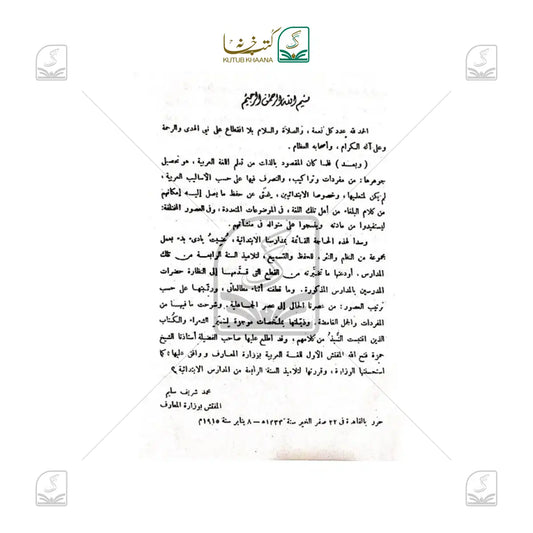 كتب خانہ
KUTUB KHAANA
بسم الله الرحمن الرحيم
الحمد لله عدد كل نعمة، والصلاة والسلام بلا انقطاع على نبي الهدى والرحمة
وعلى آله الكرام، وأصحابه العظام.
(وبعد) فلما كان المقصود بالذات من تعلم اللغة العربية، هو تحصيل
جوهرها: من مفردات وتراكيب، والتصرف فيها على حسب الأساليب العربية،
لم يكن لمتعلميها، وخصوصا الابتدائيين، غنى عن حفظ ما يصل إليه إمكانهم
من كلام البلغاء من أهل تلك اللغة، في الموضوعات المتعددة، وفي العصور المختلفة:
ليستفيدوا من مادته وينسجوا على منواله في منشآتهم.
وسدا لهذه الحاجة القائمة بمدارسنا الابتدائية، عنيت بادئ بدء بعمل
مجموعة من النظم والنثر، للحفظ والتسميع، لتلاميذ السنة الرابعة من تلك
المدارس. أودعتها ما تخيرته من القطع التي قدمها إلى النظارة حضرات
المدرسين بالمدارس المذكورة. وما قطفته أثناء مطالعاتي، ورتبتها على حسب
ترتيب العصور: من عصرنا الحالي إلى عصر الجاهلية. وشرحت ما فيها من
المفردات والجمل الغامضة، وذيلتها بملخصات موجزة لسير الشعراء والكتاب
الذين اقتبست النبذ من كلامهم، وقد اطلع عليها صاحب الفضيلة أستاذنا الشيخ
حمزة فتح الله المفتش الأول للغة العربية بوزارة المعارف ووافق عليها، كما
استحسنتها الوزارة، وقررتها لتلاميذ السنة الرابعة من المدارس الابتدائية
محمد شريف سليم
المفتش بوزارة المعارف
حرر بالقاهرة في ٢٢ صفر الخير سنة ١٣٣٣هـ — ٨ يناير سنة ١٩١٥م